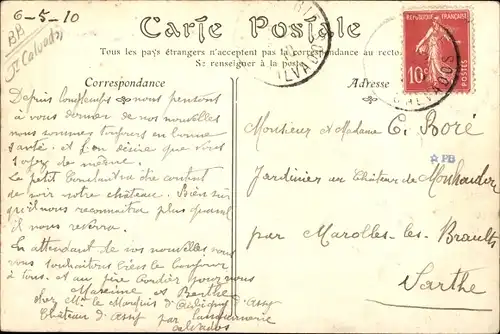 6-5-10
Carte Postale
Tous les pays étrangers n'acceptent pas la correspondance au recto.
Se renseigner à la poste
Correspondance
Adresse
REPUBLIQUE FRANÇAISE
10c
POSTES
CALVADOS
Depuis longtemps nous pensons
à vous donner de nos nouvelles
nous sommes toujours en bonne
santé et l'on désire que vous
soyez de même.
Le petit être content
de voir notre château. Bien sûr
qu'il nous reconnaitra plus quand
il nous reverra.
En attendant de vos nouvelles nous
vous souhaitons le bonjour
à tous. et au père pour nous
Maxime et Berthe
chez Mr le Marquis d'Aubigny d'Assy
Château d'Assy par Langannerie
Calvados
Monsieur et Madame E. Boré
PB
Jardinier au Château de
par Marolles-les-Braults
Sarthe